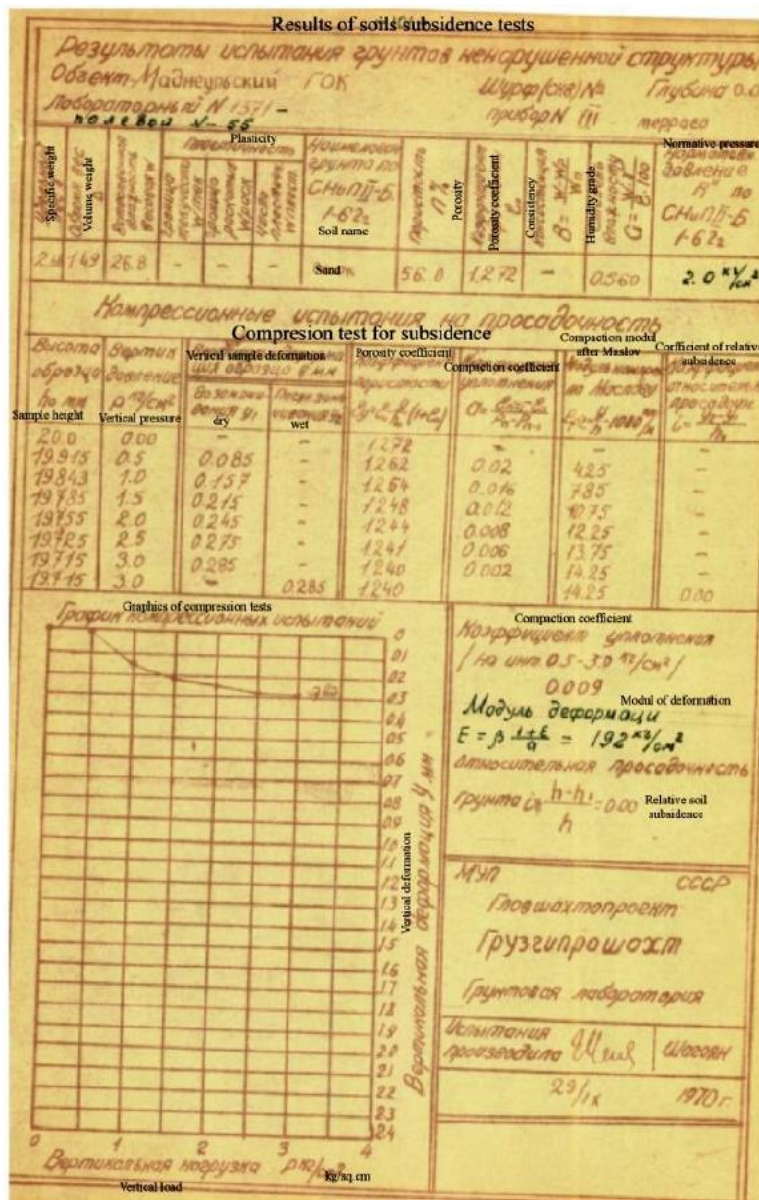 Results of soils subsidence tests
Результаты испытания грунтов ненарушенной структуры
Объект-Маднеульский ГОК Шурф(скв)№ Глубина 0.0
Лабораторный N 1371 - прибор N III
полевой N- 55 терраса
Specific weight
Volume weight
Plasticity
Soil name
Porosity
Porosity coefficient
Consistency
Humidity grade
Normative pressure
Наименован
грунта по
СНиП II-Б
1-62г
давление
R" по
СНиП II-Б
1-62г
1.49 26.8 - - - Sand 56.0 1.272 - 0.560 2.0 кг/см²
Компрессионные испытания на просадочность
Compresion test for subsidence
Высота образца h₀ мм
Sample height
Вертик давление p кг/см²
Vertical pressure
Vertical sample deformation
dry
wet
Porosity coefficient
Compaction coefficient
Compaction modul after Maslov
Coefficient of relative subsidence
20.0 0.00 - - 1.272 - - -
19.915 0.5 0.085 - 1.262 0.02 4.25 -
19.843 1.0 0.157 - 1.254 0.016 7.85 -
19.785 1.5 0.215 - 1.248 0.012 10.75 -
19.755 2.0 0.245 - 1.244 0.008 12.25 -
19.725 2.5 0.275 - 1.241 0.006 13.75 -
19.715 3.0 0.285 - 1.240 0.002 14.25 -
19.715 3.0 - 0.285 1.240 14.25 0.00
Graphics of compression tests
График компрессионных испытаний
0
0.1
0.2
0.3
0.4
0.5
0.6
0.7
0.8
0.9
1.0
1.1
1.2
1.3
1.4
1.5
1.6
1.7
1.8
1.9
2.0
2.1
2.2
2.3
2.4
Вертикальная деформация У мм
Vertical deformation
0 1 2 3 4
Вертикальная нагрузка p кг/см²
Vertical load kg/sq.cm
Compaction coefficient
Коэффициент уплотнения
/ на инт. 0.5-3.0 кг/см² /
0.009
Modul of deformation
Модуль деформаци
E = β 1+ε/a = 192 кг/см²
относительная просадочность
грунта i= h-h₁/h =0.00
Relative soil subsidence
МУП СССР
Главшахтопроект
Грузгипрошахт
Грунтовая лаборатория
Испытания
производила
29/IX 1970 г.